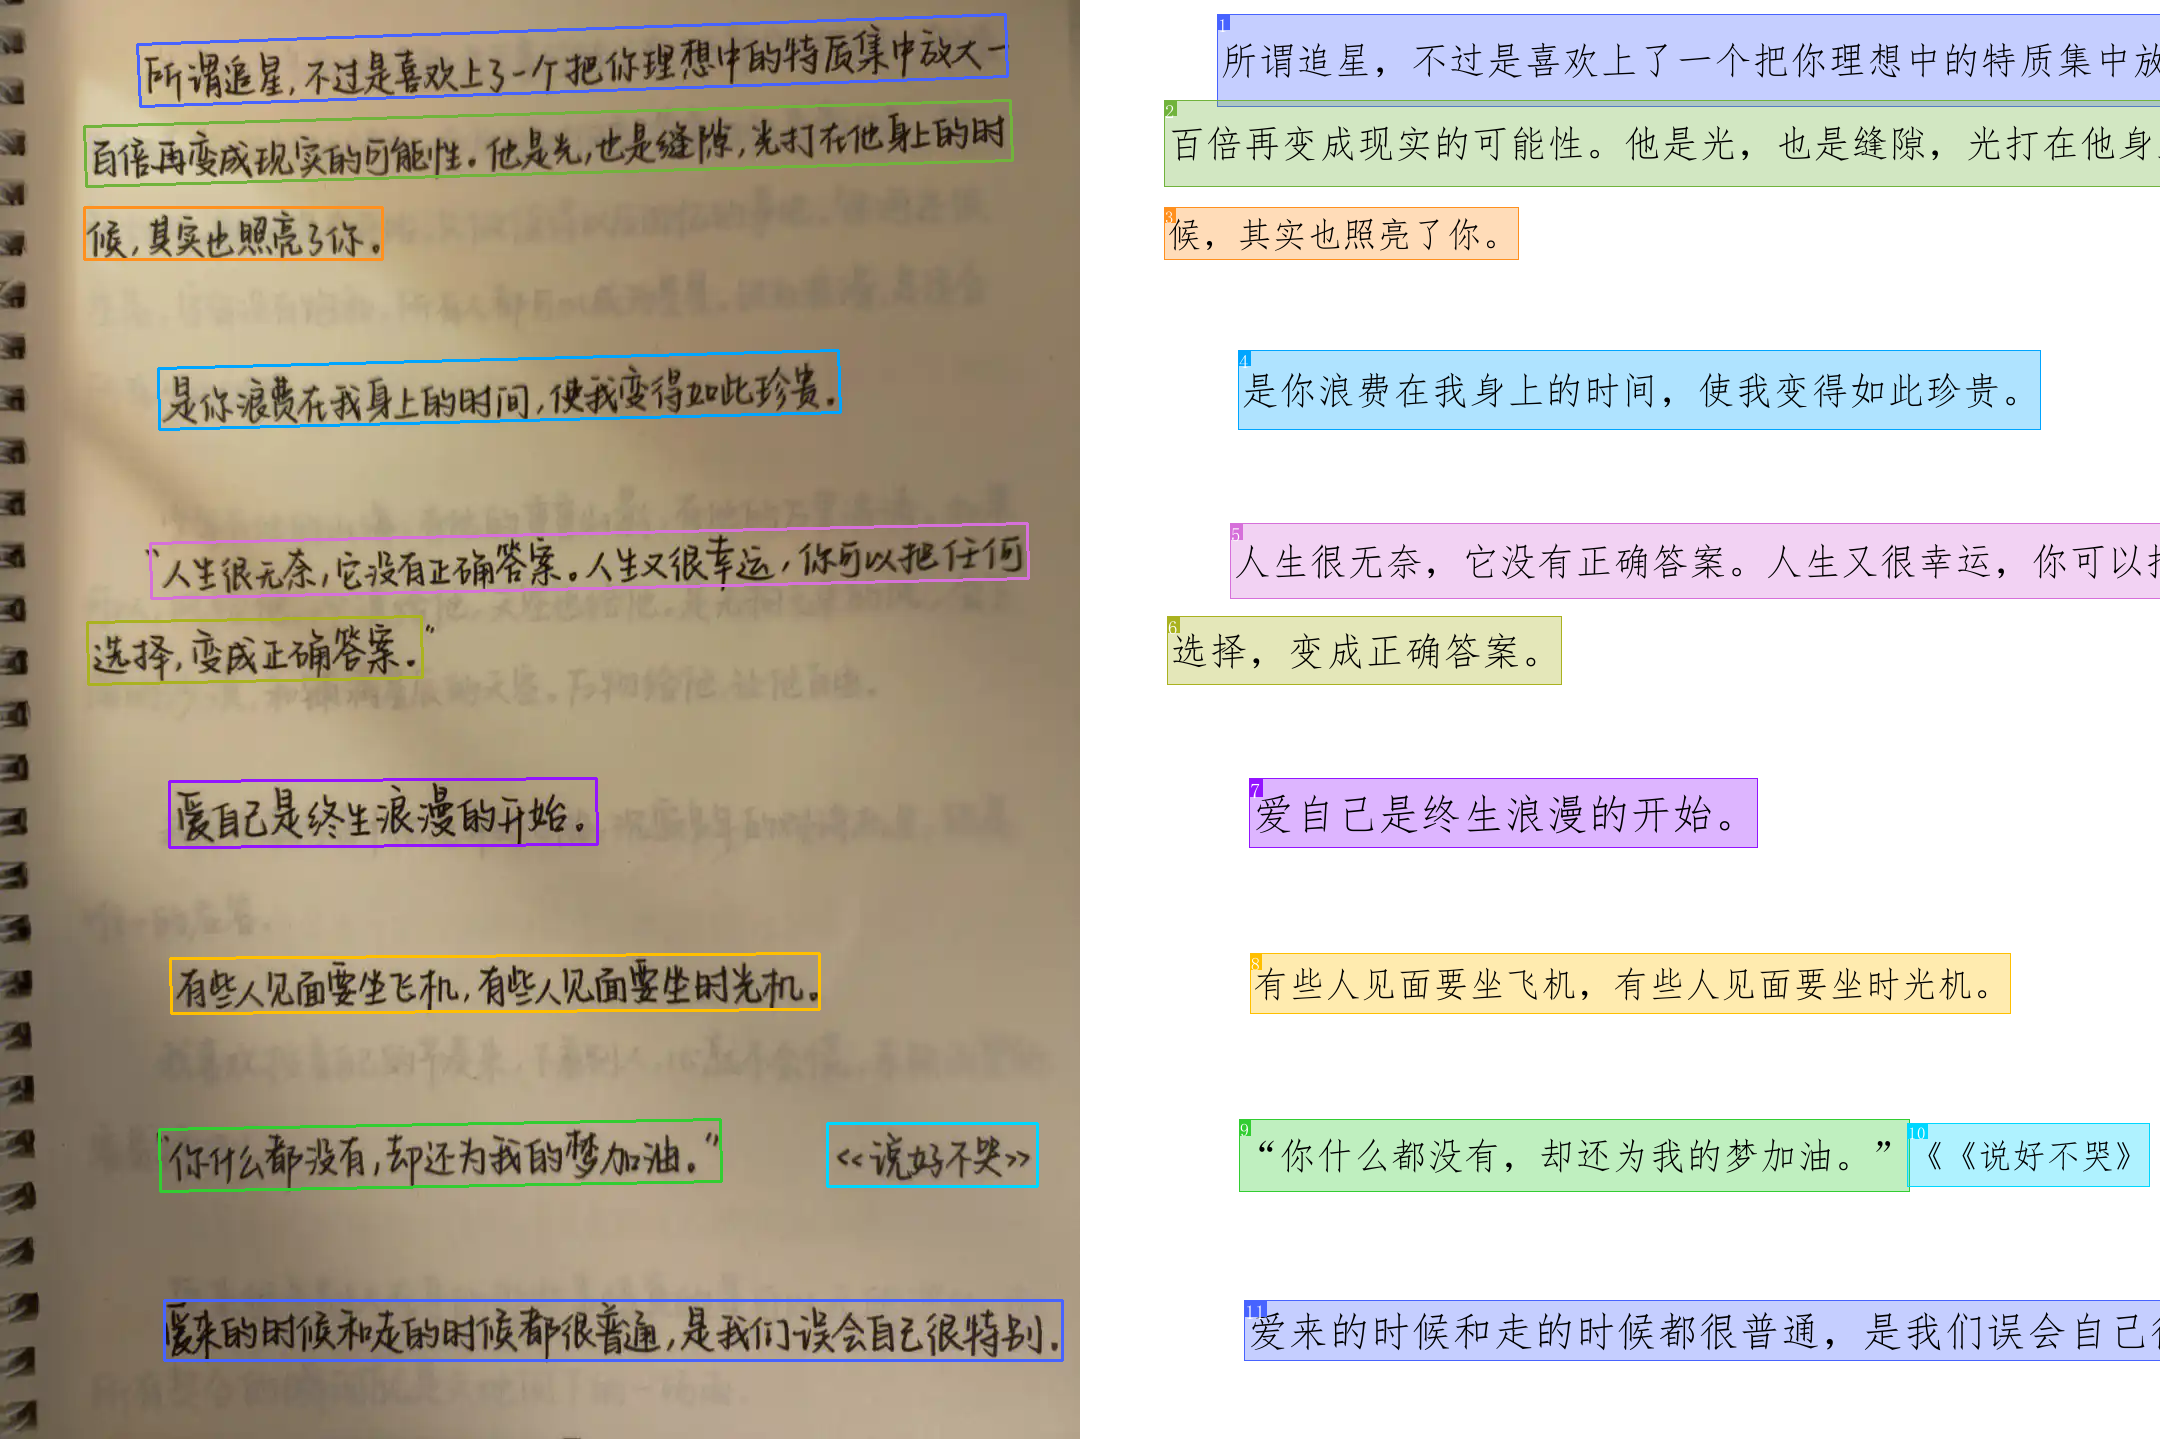 所谓追星,不过是喜欢上了一个把你理想中的特质集中放大一
百倍再变成现实的可能性。他是光,也是缝隙,光打在他身上的时
候,其实也照亮了你。
是你浪费在我身上的时间,使我变得如此珍贵。
“人生很无奈,它没有正确答案。人生又很幸运,你可以把任何
选择,变成正确答案。”
爱自己是终生浪漫的开始。
有些人见面要坐飞机,有些人见面要坐时光机。
“你什么都没有,却还为我的梦加油。” <<说好不哭>>
爱来的时候和走的时候都很普通,是我们误会自己很特别.
1
所谓追星，不过是喜欢上了一个把你理想中的特质集中放
2
百倍再变成现实的可能性。他是光，也是缝隙，光打在他身
3
候，其实也照亮了你。
4
是你浪费在我身上的时间，使我变得如此珍贵。
5
人生很无奈，它没有正确答案。人生又很幸运，你可以
6
选择，变成正确答案。
7
爱自己是终生浪漫的开始。
8
有些人见面要坐飞机，有些人见面要坐时光机。
9
“你什么都没有，却还为我的梦加油。”
10
《《说好不哭》
11
爱来的时候和走的时候都很普通，是我们误会自己